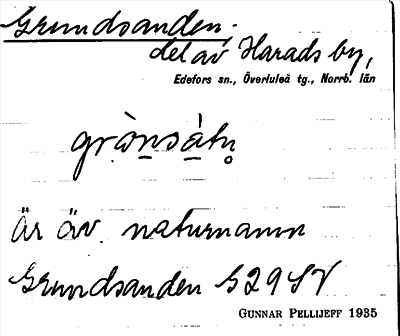 Grundsanden,
del av Harads by,
Edefors sn., Överluleå tg., Norrb. län
grò̱nsà̱tn̥
Är äv. naturnamn
Grundsanden G29SV
GUNNAR PELLIJEFF 1935